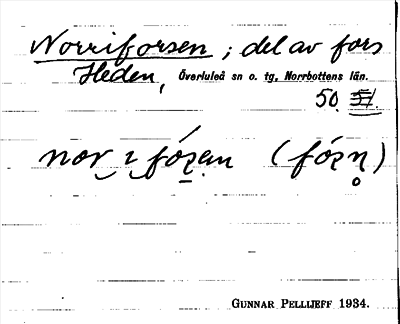 Norriforsen ; del av fors
Heden, Överluleå sn o. tg, Norrbottens län.
50. 51.
nor ı fózan (fózn̥)
GUNNAR PELLIJEFF 1934.